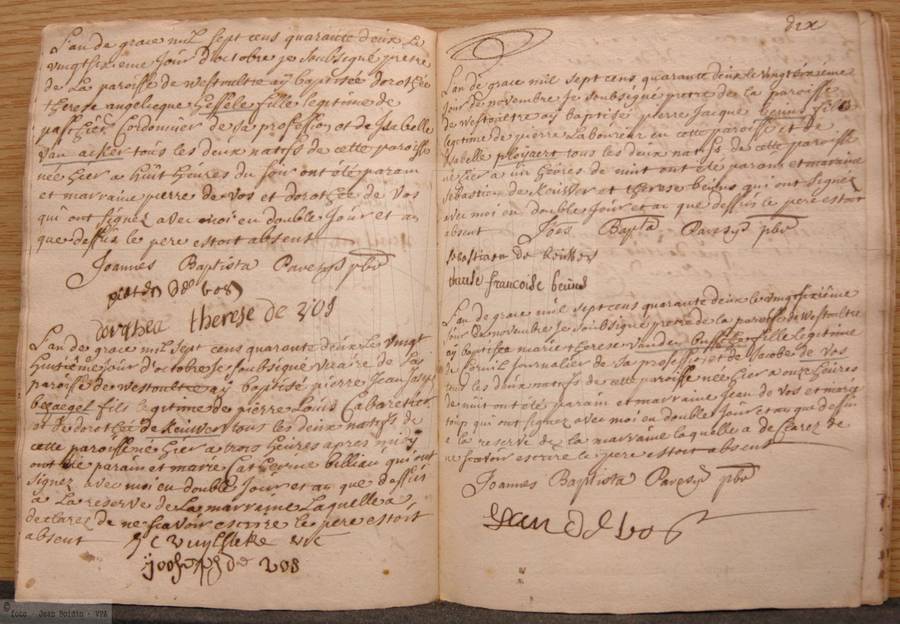 L'an de grace mil sept cens quarante deux le
vingtsixieme jour d'octobre je soubsigné pretre
de La paroisse de Westoultre aÿ baptisée dorothée
therese angelicque hessele fille legitime de
paschier Cordonnier de sa profession et de Isabelle
Van acker tous les deux natifs de cette paroisse
née hier a huit heures du soir ont été parain
et marraine pierre de vos et dorothée de vos
qui ont signez avec moi en double jour et an
que dessus le pere estoit absent
Joannes Baptista Pavesÿs pbr
pieter de vos
dorothea therese de vos
L'an de grace mil sept cens quarante deux Les vingt
huitième jour d'octobre je soubsigné vicaire de La
paroisse de westoultre aÿ baptisé pierre Jean Joseph
bezaegel fils legitime de pierre Louis Cabaretier
et de dorothée de Keuwer tous les deux natifs de
cette paroisse né hier a trois heures apres midÿ
ont été parain et marie Catherine billiau qui ont
signez avec moi en double jour et an que dessus
a La reserve de La marraine Laquelle a
declarez de ne scavoir escrire le pere estoit
absent J C Vuylsteke vic
joseph de vos
dix
L'an de grace mil sept cens quarante deux le vingtdeuxième
jour de novembre je soubsigné pretre de la paroisse
de Westoultre aÿ baptisé pierre Jacque beuns fils
legitime de pierre Laboureur en cette paroisse et de
Isabelle ployaert tous les deux natifs de cette paroisse
né hier a six heures de nuit ont été parain et maraine
Sebastien de Keuwer et therese beuns qui ont signez
avec moi en double jour et an que dessus le pere estoit
absent Joes Bapta Pavesÿs pbr
bastiaen de keuker
therese francoise beuns
L'an de grace mil sept cens quarante deux le vingtsixième
jour de novembre je soubsigné pretre de la paroisse de Westoultre
aÿ baptisee marie therese Vanden bussche fille legitime
de Corneil journalier de sa profession et de Jacobe de vos
tous les deux natifs de cette paroisse née hier a onze heures
de nuit ont été parain et marraine Jean de vos et marg
qui ont signez avec moi en double jour et an que dessus
a la reserve de la marraine laquelle a declarez de
ne scavoir escrire le pere estoit absent
Joannes Baptista Pavesÿs pbr
Jean de vos
© foto - Jean Boidin - VPA